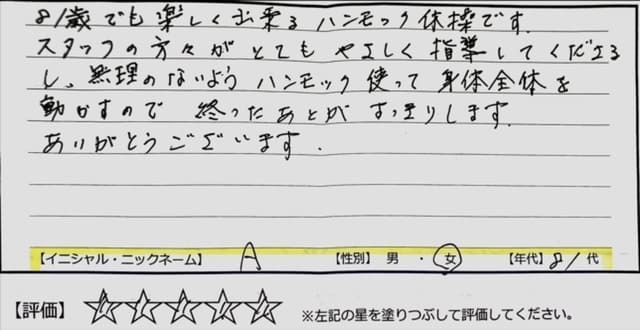 81歳でも楽しく出来るハンモック体操です.
スタッフの方々がとてもやさしく指導してくださる
し、無理のないようハンモック使って身体全体を
動かすので 終ったあとがすっきりします.
ありがとうございます.
【イニシャル・ニックネーム】 A 【性別】 男 ・ 女 【年代】 81 代
【評価】 ☆☆☆☆☆ ※左記の星を塗りつぶして評価してください。